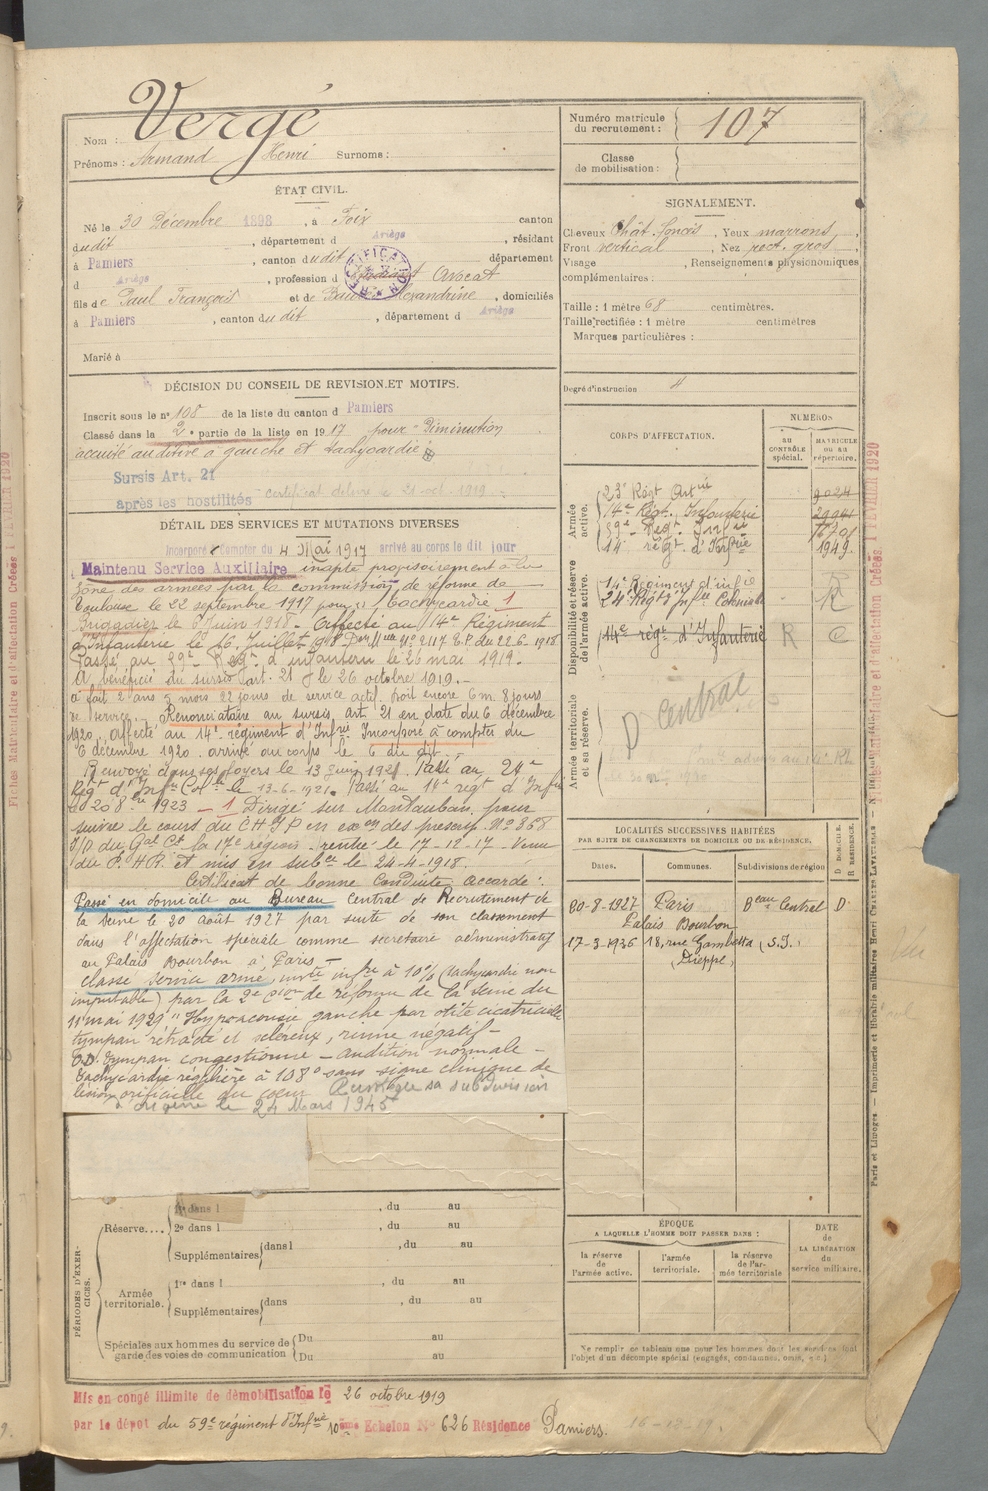 Nom : Vergé
Prénoms : Armand Henri Surnoms :
Numéro matricule du recrutement : 107
Classe de mobilisation :
ÉTAT CIVIL.
Né le 30 Décembre 1898, à Foix canton
dudit, département d Ariège, résidant
à Pamiers, canton dudit département
d Ariège, profession d Avocat
RECTIFICATION
fils de Paul François et de Alexandrine, domiciliés
à Pamiers, canton dudit, département d Ariège
Marié à
SIGNALEMENT.
Cheveux Chât. foncés, Yeux marrons,
Front vertical, Nez rect. gros,
Visage , Renseignements physionomiques
complémentaires :
Taille : 1 mètre 68 centimètres.
Taille rectifiée : 1 mètre centimètres
Marques particulières :
Degré d'instruction
DÉCISION DU CONSEIL DE REVISION ET MOTIFS.
Inscrit sous le n° 108 de la liste du canton d Pamiers
Classé dans la 2e partie de la liste en 1917 pour "Diminution
acuité auditive à gauche et tachycardie
Sursis Art. 21
après les hostilités certificat délivré le 21 oct. 1919
DÉTAIL DES SERVICES ET MUTATIONS DIVERSES
Incorporé à compter du 4 Mai 1917 arrivé au corps le dit jour
Maintenu Service Auxiliaire inapte provisoirement à la
zone des armées par la commission de réforme de
Toulouse le 22 septembre 1917 pour Tachycardie 1
Brigadier le 8 Juin 1918. Affecté au 14e Régiment
d'Infanterie le 16 Juillet 1918 Don Mlle No 2117 E.P. du 22-6-1918
Passé au 59e Regt d'infanterie le 26 mai 1919.
A bénéficié du sursis art. 21 le 26 octobre 1919.
a fait 2 ans 5 mois 22 jours de service actif, doit encore 6 m. 8 jours
de service. Renonciataire au sursis Art 21 en date du 6 décembre
1920. affecté au 14e régiment d'Infrie Incorporé à compter du
6 décembre 1920. arrivé au corps le 6 du dit.
Renvoyé dans ses foyers le 13 juin 1921. Passé au 24e
Regt d'Infie Colle le 13-6-1921. Passé au 14e regt d'Infie
le 20 8bre 1923 1 Dirigé sur Montauban pour
suivre le cours du C H J P en exon des prescrip. No 868
du Gal Ct la 17e région rentré le 17-12-17 Venu
du P.H.R. et mis en subce le 24-4-1918.
Certificat de bonne Conduite accordé.
Passé en domicile au Bureau Central de Recrutement de
la Seine le 20 Août 1927 par suite de son classement
dans l'affectation spéciale comme secrétaire administratif
au Palais Bourbon à Paris
Classé service armé, invté infre à 10% (tachycardie non
imputable) par la 2e Cion de réforme de la Seine du
11 mai 1929 "Hypoacousie gauche par otite cicatricielle
tympan rétracté et scléreux, rinne négatif
O.D. tympan congestionné - audition normale -
Tachycardie régulière à 108° sans signe clinique de
lésion orificielle au coeur Réintègre sa subdivision
d'origine le 24 Mars 1945
CORPS D'AFFECTATION.
NUMÉROS
au CONTRÔLE spécial.
MATRICULE ou au répertoire.
Armée active.
23e Régt Artie 9024
14e Régt Infanterie
59e Regt Infie
14e régt d'Infrie 1949.
Disponibilité et réserve de l'armée active.
14e Régiment d'infie R
24e Régt Infie Coloniale R
14e régt d'Infanterie R C
Armée territoriale et sa réserve.
D Central
LOCALITÉS SUCCESSIVES HABITÉES
PAR SUITE DE CHANGEMENTS DE DOMICILE OU DE RÉSIDENCE.
Dates. Communes. Subdivisions de région D. DOMICILE. R. RÉSIDENCE.
20-8-1927 Paris Beau Central D
Palais Bourbon
17-3-1936 18, rue Gambetta (S.I.)
Dieppe
PÉRIODES D'EXERCICES.
Réserve.... 1re dans l , du au
2e dans l , du au
Supplémentaires dans l , du au
Armée territoriale. 1re dans l , du au
Supplémentaires dans , du au
Spéciales aux hommes du service de garde des voies de communication
Du au
Du au
ÉPOQUE
A LAQUELLE L'HOMME DOIT PASSER DANS :
la réserve de l'armée active.
l'armée territoriale.
la réserve de l'armée territoriale
DATE de LA LIBÉRATION du service militaire.
Ne remplir ce tableau que pour les hommes dont les services font
l'objet d'un décompte spécial (engagés, condamnés, omis, etc.)
Mis en congé illimité de démobilisation le 26 octobre 1919
par le dépôt du 59e régiment d'Infrie 10ème Echelon No 626 Résidence Pamiers.
16-12-19.
Fiches Matriculaire et d'affectation Créées 1 FEVRIER 1920
Paris et Limoges — Imprimerie et librairie militaires Henri CHARLES-LAVAUZELLE